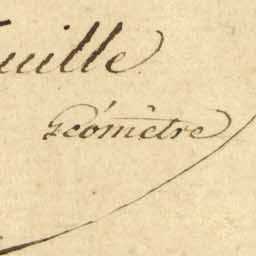 uille
Géomètre